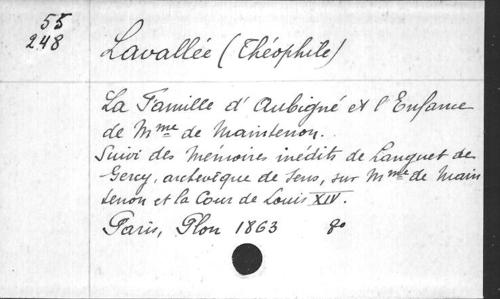 55
248
Lavallée (Théophile)
La Famille d'Aubigné et l'Enfance
de Mme de Maintenon.
Suivi des Mémoires inédits de Languet de
Gercy, archevêque de Sens, sur Mme de Main
tenon et la Cour de Louis XIV.
Paris, Plon 1863 8o